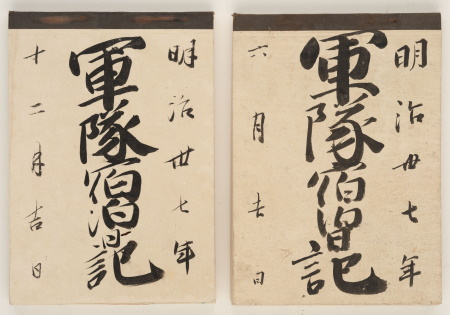 明治丗七年
軍隊宿泊記
十二月吉日
明治丗七年
軍隊宿泊記
六月吉日